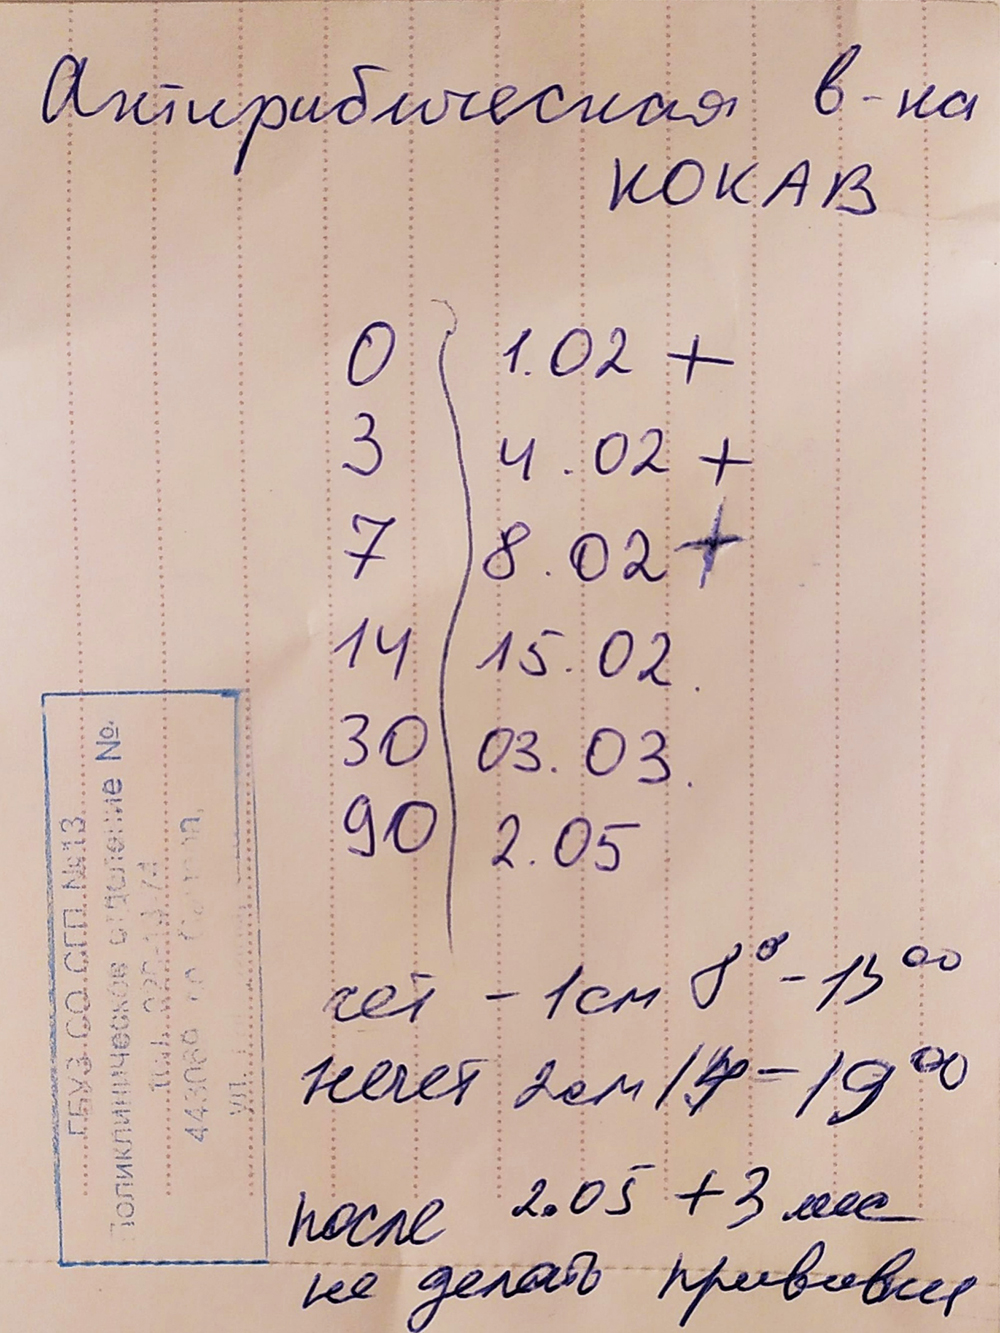 Антирабическая в-на
КОКАВ
0 1.02 +
3 4.02 +
7 8.02 +
14 15.02.
30 03.03.
90 2.05
чет - 1см 8⁰⁰ - 13⁰⁰
нечет 2см - 19⁰⁰
после 2.05 + 3 мес
не делать прививки
ГБУЗ СО СГП №13
Поликлиническое отделение №